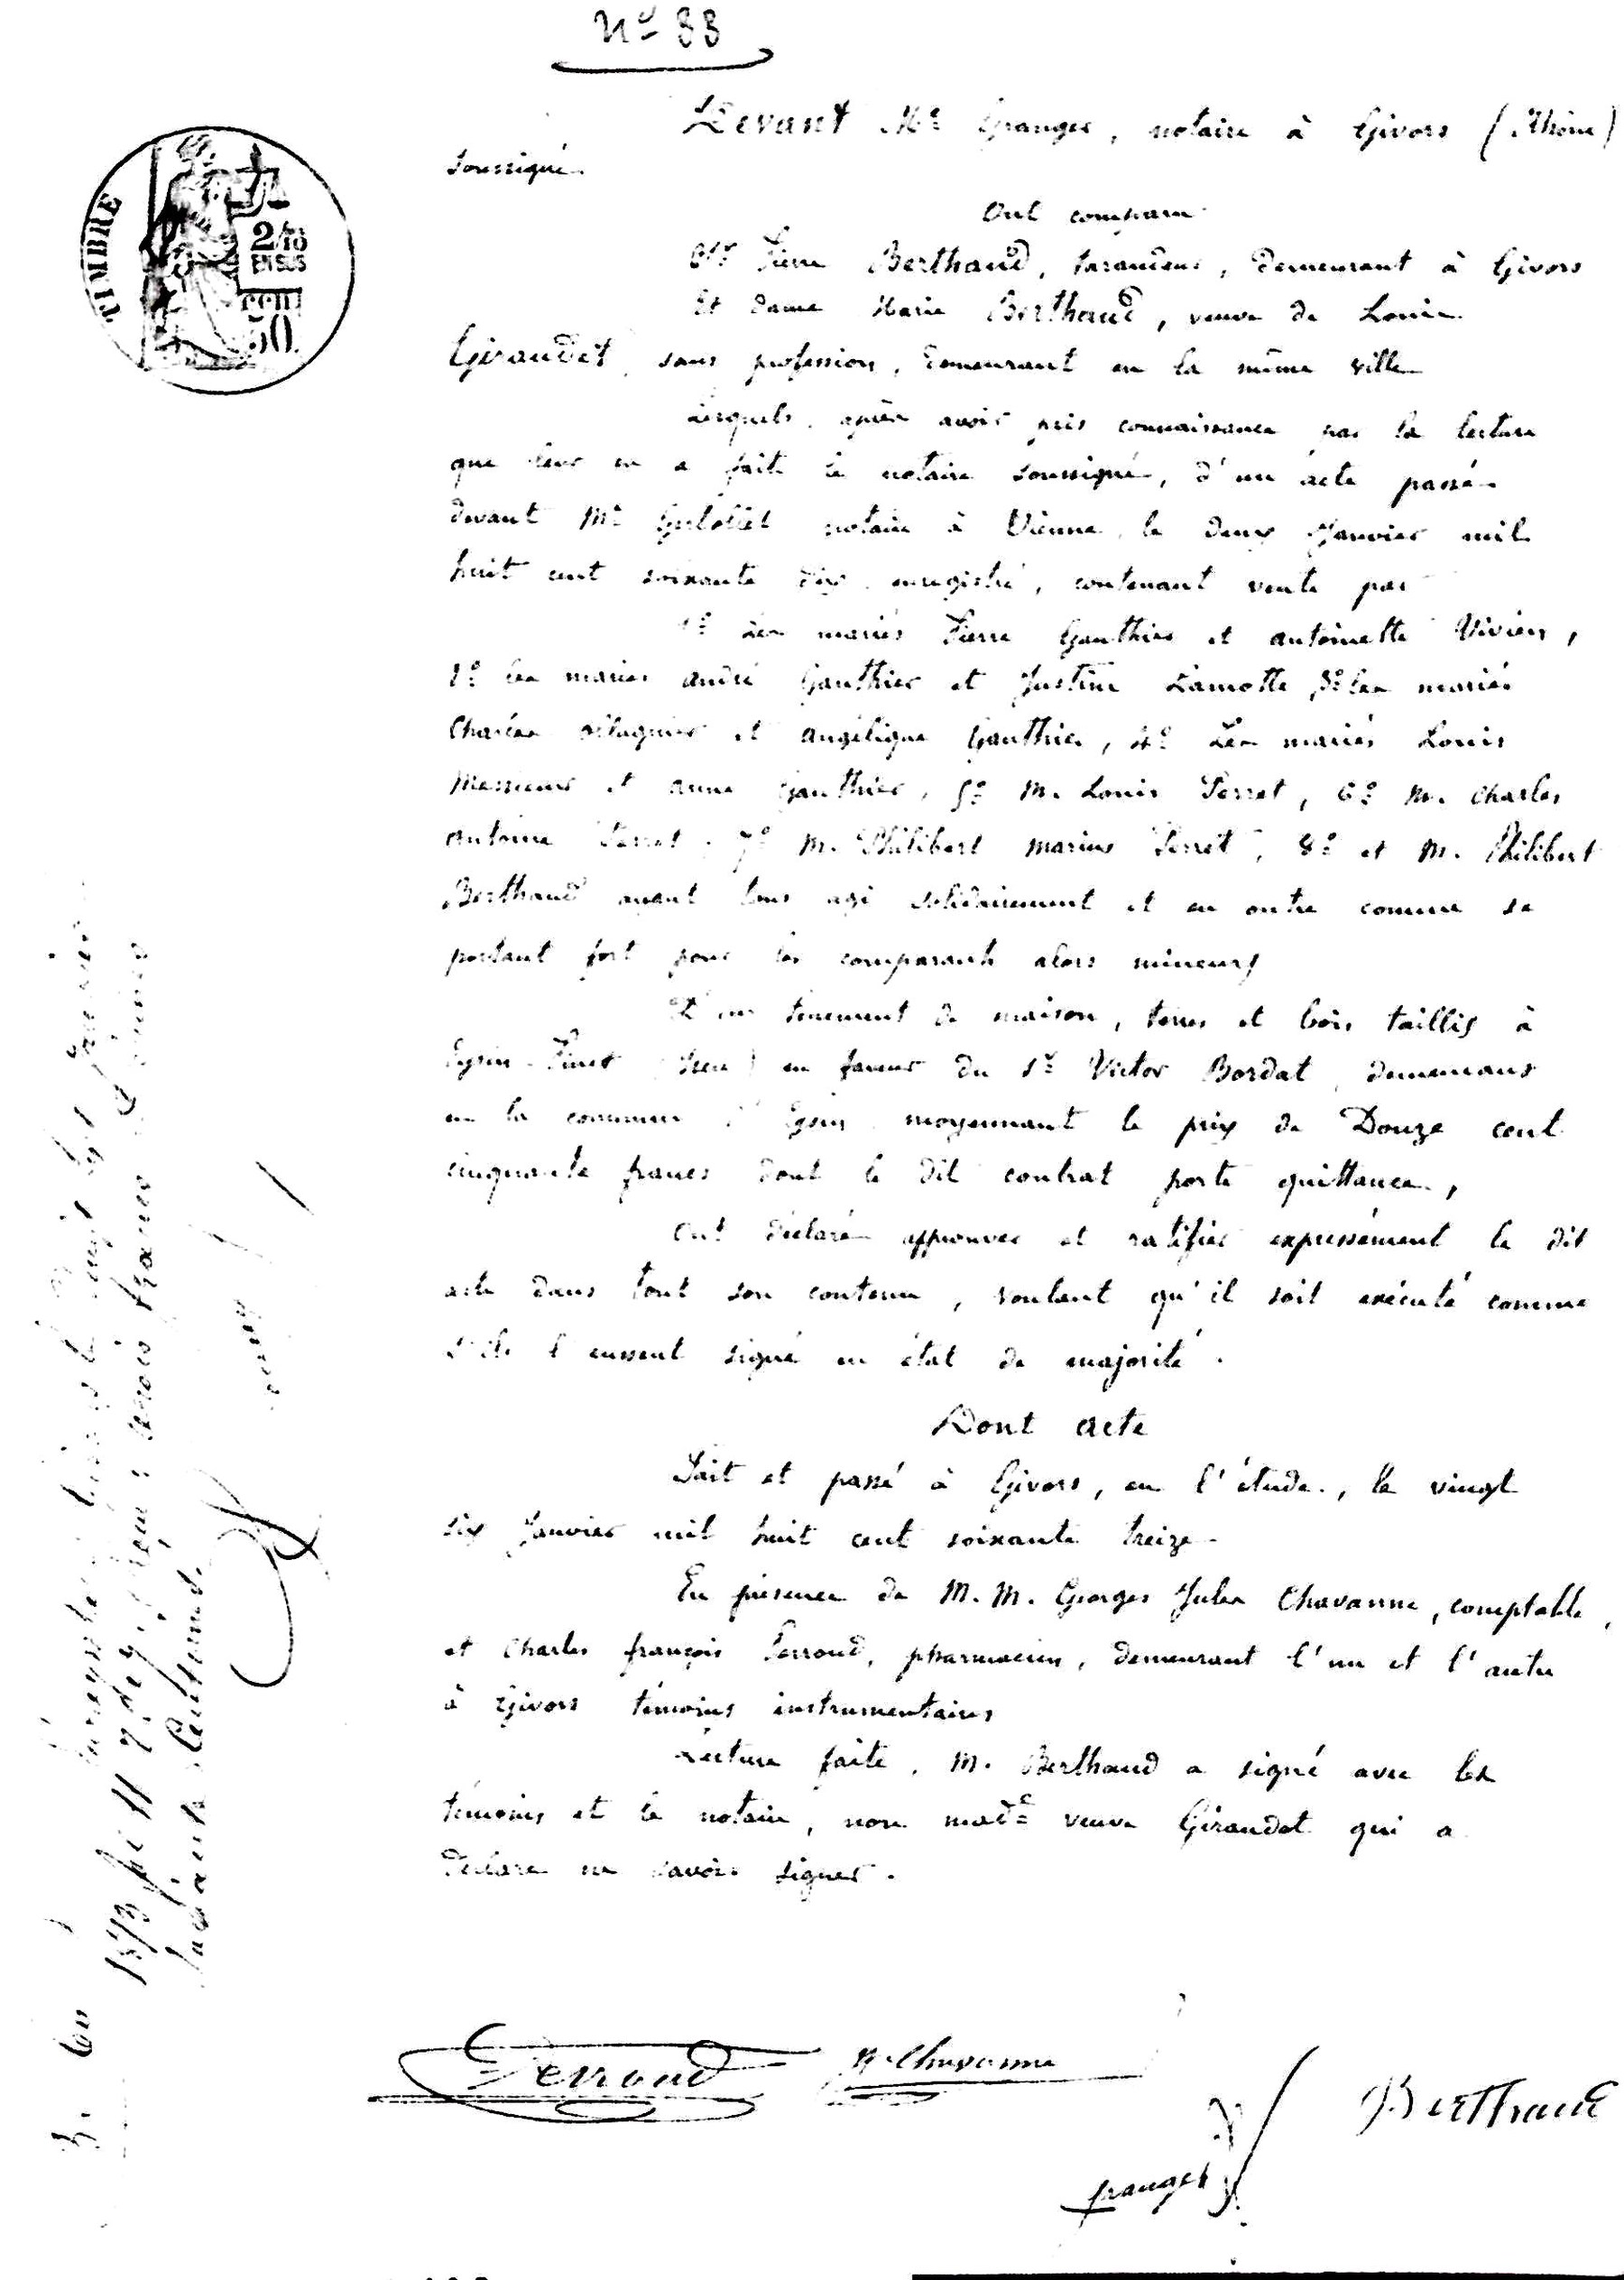 Nº 88
TIMBRE
2/10
EN SUS
50
Devant Mᵉ Granger, notaire à Givors (Rhône)
soussigné.
Ont comparu
Mʳ Pierre Berthaud, demeurant à Givors
Et dame Marie Berthaud, veuve de Louis
Giraudet, sans profession, demeurant en la même ville
Lesquels, après avoir pris connaissance par la lecture
que leur en a faite le notaire soussigné, d'un acte passé
devant Mᵉ notaire à Vienne, le deux Janvier mil
huit cent soixante dix, enregistré, contenant vente par
1º Les mariés Pierre Gauthier et antoinette Vivien,
2º les mariés andré Gauthier et Justine Lamotte, 3º les mariés
Charles et angélique Gauthier, 4º Les mariés Louis
Messieux et anne Gauthier, 5º M. Louis Perret, 6º M. Charles
antoine Perret, 7º M. Philibert Marius Perret, 8º et M. Philibert
Berthaud ayant tous agi solidairement et en outre comme se
portant fort pour les comparants alors mineurs
D'un tenement de maison, terres et bois taillis à
Eyzin-Pinet (Isère) en faveur du sʳ Victor Bordat, demeurant
en la commune d'Eyzin moyennant le prix de Douze cent
cinquante francs dont le dit contrat porte quittance,
Ont déclaré approuver et ratifier expressément le dit
acte dans tout son contenu, voulant qu'il soit exécuté comme
s'ils l'eussent signé en état de majorité.
Dont acte
Fait et passé à Givors, en l'étude, le vingt
six Janvier mil huit cent soixante treize.
En présence de M.M. Georges Jules Chavanne, comptable,
et Charles françois Perroud, pharmacien, demeurant l'un et l'autre
à Givors témoins instrumentaires
Lecture faite, M. Berthaud a signé avec les
témoins et le notaire, non madᵉ veuve Giraudet qui a
déclaré ne savoir signer.
Perroud
Chavanne
Berthaud
Granger